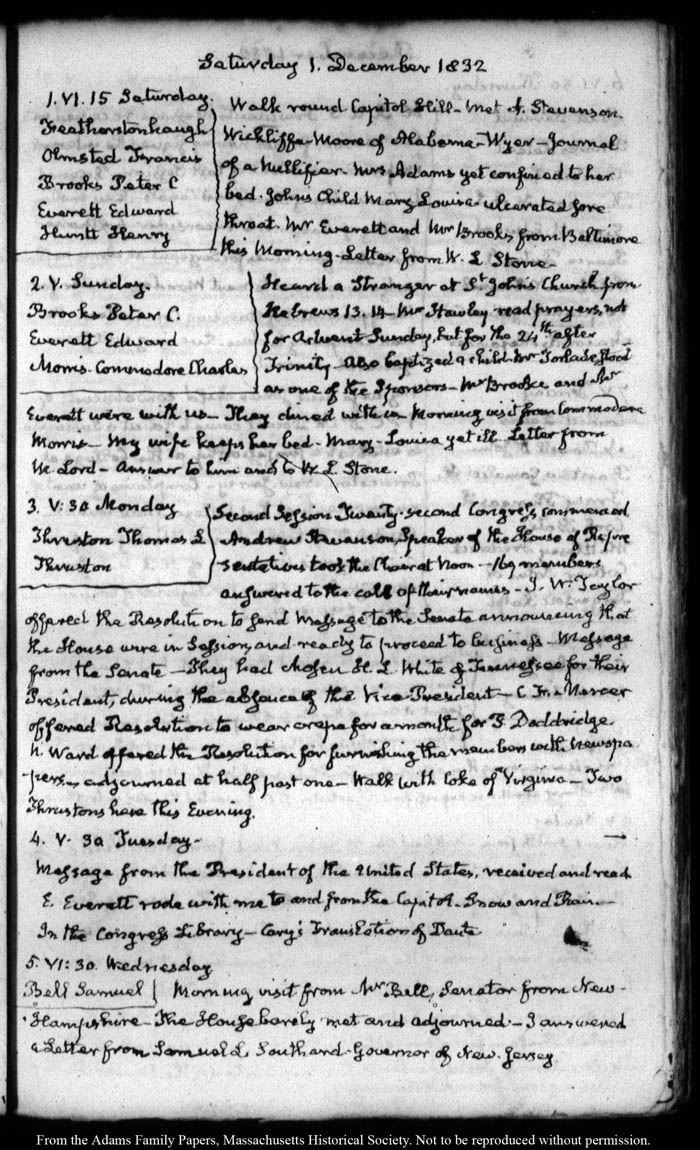 Saturday 1. December 1832
1. VI. 15 Saturday.
Featherstonhaugh
Olmsted Francis
Brooks Peter C
Everett Edward
Huntt Henry
Walk round Capitol Hill - Met A. Stevenson.
Wickliffe Moore of Alabama - Wyer - Journal
of a Nullifier. Mrs Adams yet confined to her
bed. John's Child Mary Louisa ulcerated sore
throat. Mr Everett and Mr Brooks from Baltimore
this Morning. Letter from W. L. Stone -
2. V. Sunday.
Brooks Peter C.
Everett Edward
Morris. Commodore Charles
Heard a Stranger at St John's Church from
Hebrews 13. 14 - Mr Hawley read prayers, not
for Advent Sunday, but for the 24th after
Trinity - Also baptized a child. Mr stood
as one of the Sponsors - Mr Brooks and Mr
Everett were with us - They dined with us Morning visit from Commodore
Morris - My wife keeps her bed. Mary-Louisa yet ill. Letter from
M. Lord - Answer to him and to W. L. Stone.
3. V: 30 Monday
Thruston Thomas L
Thruston
Second Session Twenty-second Congress, commenced
Andrew Stevenson, Speaker of the House of Repre
sentatives took the Chair at Noon - 169 members
answered to the call of their names - J. W. Taylor
offered the Resolution to send Message to the Senate announcing that
the House were in Session, and ready to proceed to business - Message
from the Senate - They had chosen H. L. White of Tennessee for their
President, during the absence of the Vice-President - C. F. Mercer
offered Resolution to wear crape for a month for P. Doddridge
A. Ward offered the Resolution for furnishing the members with Newspa
pers - adjourned at half past one - Walk with Coke of Virginia - Two
Thrustons here this Evening.
4. V. 30 Tuesday -
Message from the President of the United States, received and read
E. Everett rode with me to and from the Capitol. Snow and Rain -
In the Congress Library - Cary's Translation of Dante
5. VI: 30. Wednesday
Bell Samuel
Morning visit from Mr Bell, Senator from New-
Hampshire - The House barely met and adjourned - I answered
a Letter from Samuel L. Southard - Governor of New-Jersey
From the Adams Family Papers, Massachusetts Historical Society. Not to be reproduced without permission.